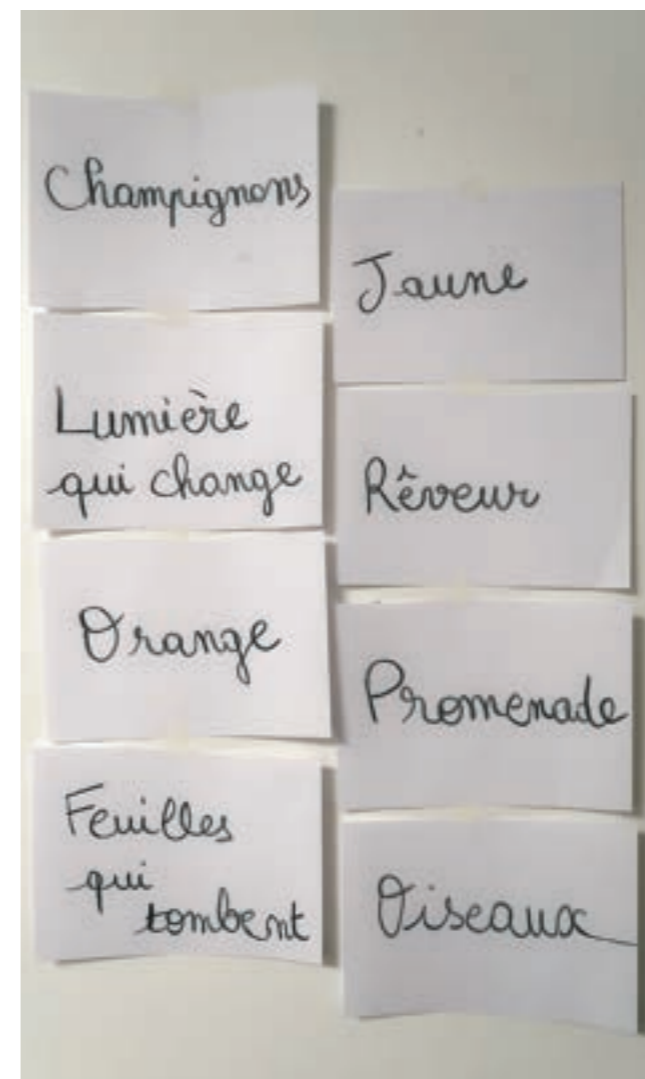 Champignons
Lumière
qui change
Orange
Feuilles
qui
tombent
Jaune
Rêveur
Promenade
Oiseaux